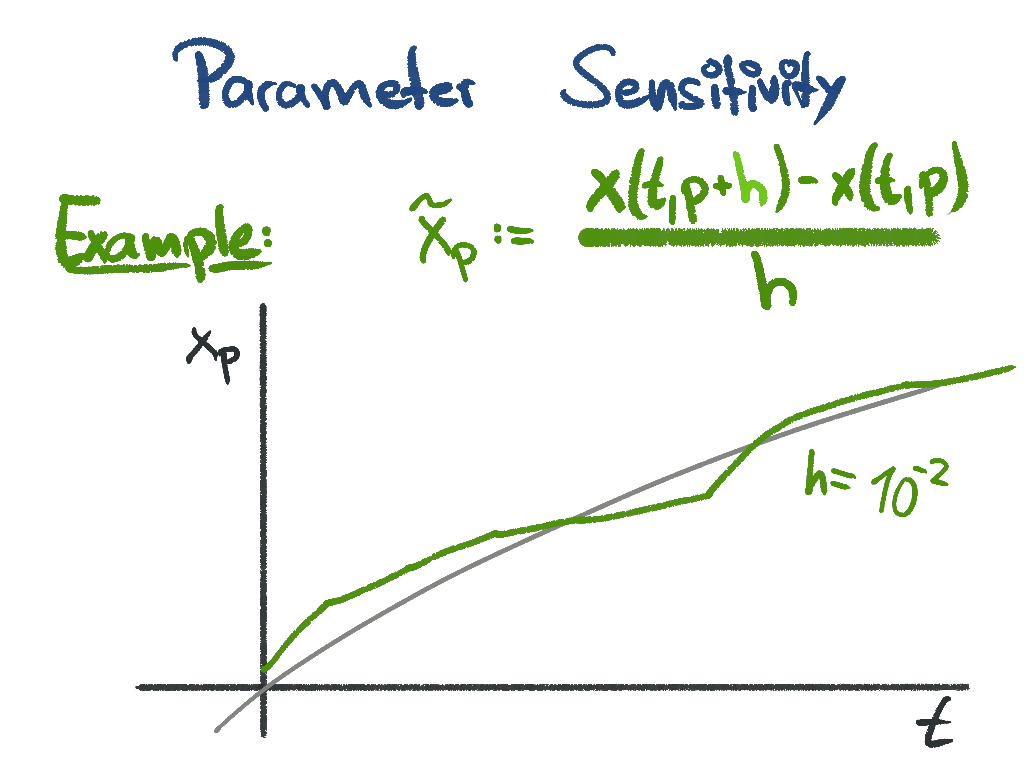 Parameter Sensitivity
Example: x̃ₚ := x(t,p+h) - x(t,p)
h
xₚ
h = 10⁻²
t